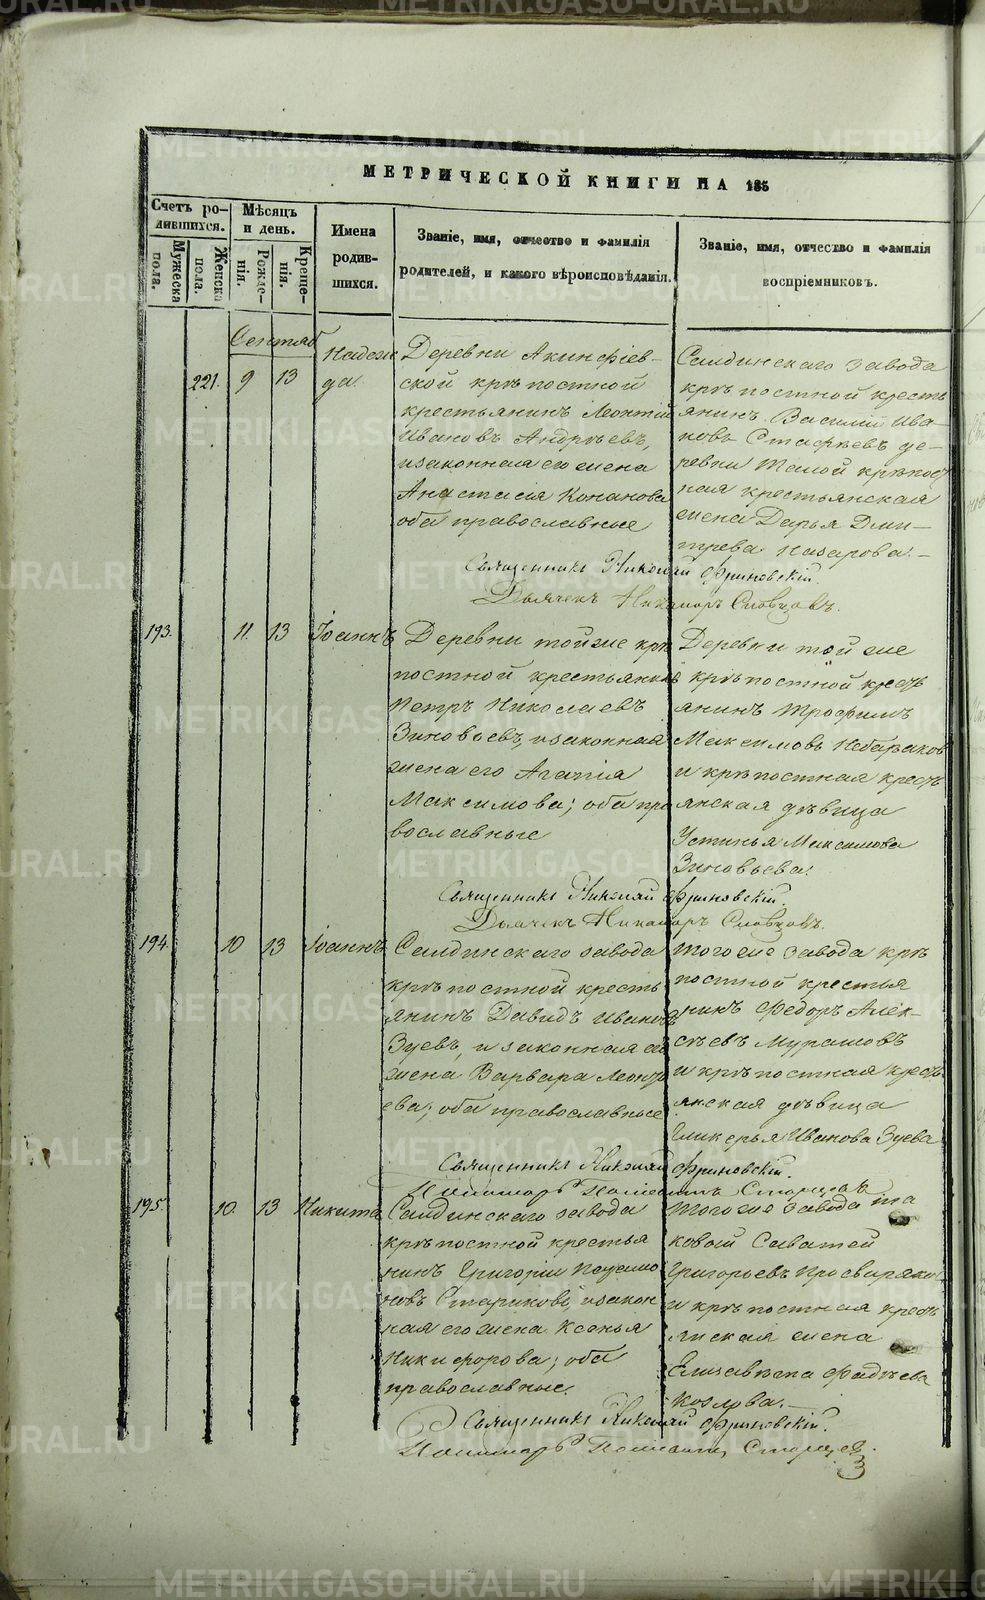 МЕТРИЧЕСКОЙ КНИГИ НА 185
Счетъ ро-
дившихся.
Мужеска
пола.
Женска
пола.
Мѣсяцъ
и день.
Рожде-
нія.
Креще-
нія.
Имена
родив-
шихся.
Званіе, имя, отчество и фамилія
родителей, и какого вѣроисповѣданія.
Званіе, имя, отчество и фамилія
воспріемниковъ.
Сентяб
221. 9 13
Надеж
да.
Деревни Акинфіев-
ской крѣпостной
крестьянинъ Леонтій
Ивановъ Андреевъ,
и законная его жена
Анастасія Конанова
оба православные
Салдинскаго завода
крѣпостной кресть
янинъ Василій Ива-
новъ Стафѣевъ де-
ревни Тамой крѣпост
ная крестьянская
жена Дарья Дми-
трева Назарова.
Священникъ Николай Фриновскій.
Дьячекъ Никаноръ Словцовъ.
193. 11. 13 Іоаннъ
Деревни тойже крѣ
постной крестьянинъ
Петръ Николаевъ
Зиновьевъ, и законная
жена его Агапія
Максимова; оба пра
вославные
Деревни той же
крѣпостной крест
янинъ Трофимъ
Максимовъ
и крѣпостная крест
янская дѣвица
Устинья Максимова
Зиновьева.
Священникъ Николай Фриновскій.
Дьячекъ Никаноръ Словцовъ.
194. 10 13 Іоаннъ
Салдинскаго завода
крѣпостной кресть
янинъ Давидъ Ивановъ
Зуевъ, и законная его
жена Варвара Леонть
ева; оба православные
Того же завода крѣ
постной крестья
нинъ Федоръ Алек-
сѣевъ Мурашовъ
и крѣпостная крест
янская дѣвица
Гликерья Иванова Зуева
Священникъ Николай Фриновскій.
Пономарь
195. 10. 13 Никита
Салдинскаго завода
крѣпостной крестья
нинъ Григорій
новъ Стариковъ, и закон
ная его жена Ксенья
Никифорова; оба
православные.
Того же завода та
ковый Саватей
Григорьевъ
и крѣпостная крест
янская жена
Елизавета Фадѣева
Козлова.
Священникъ Николай Фриновскій.
Пономарь
METRIKI.GASO-URAL.RU